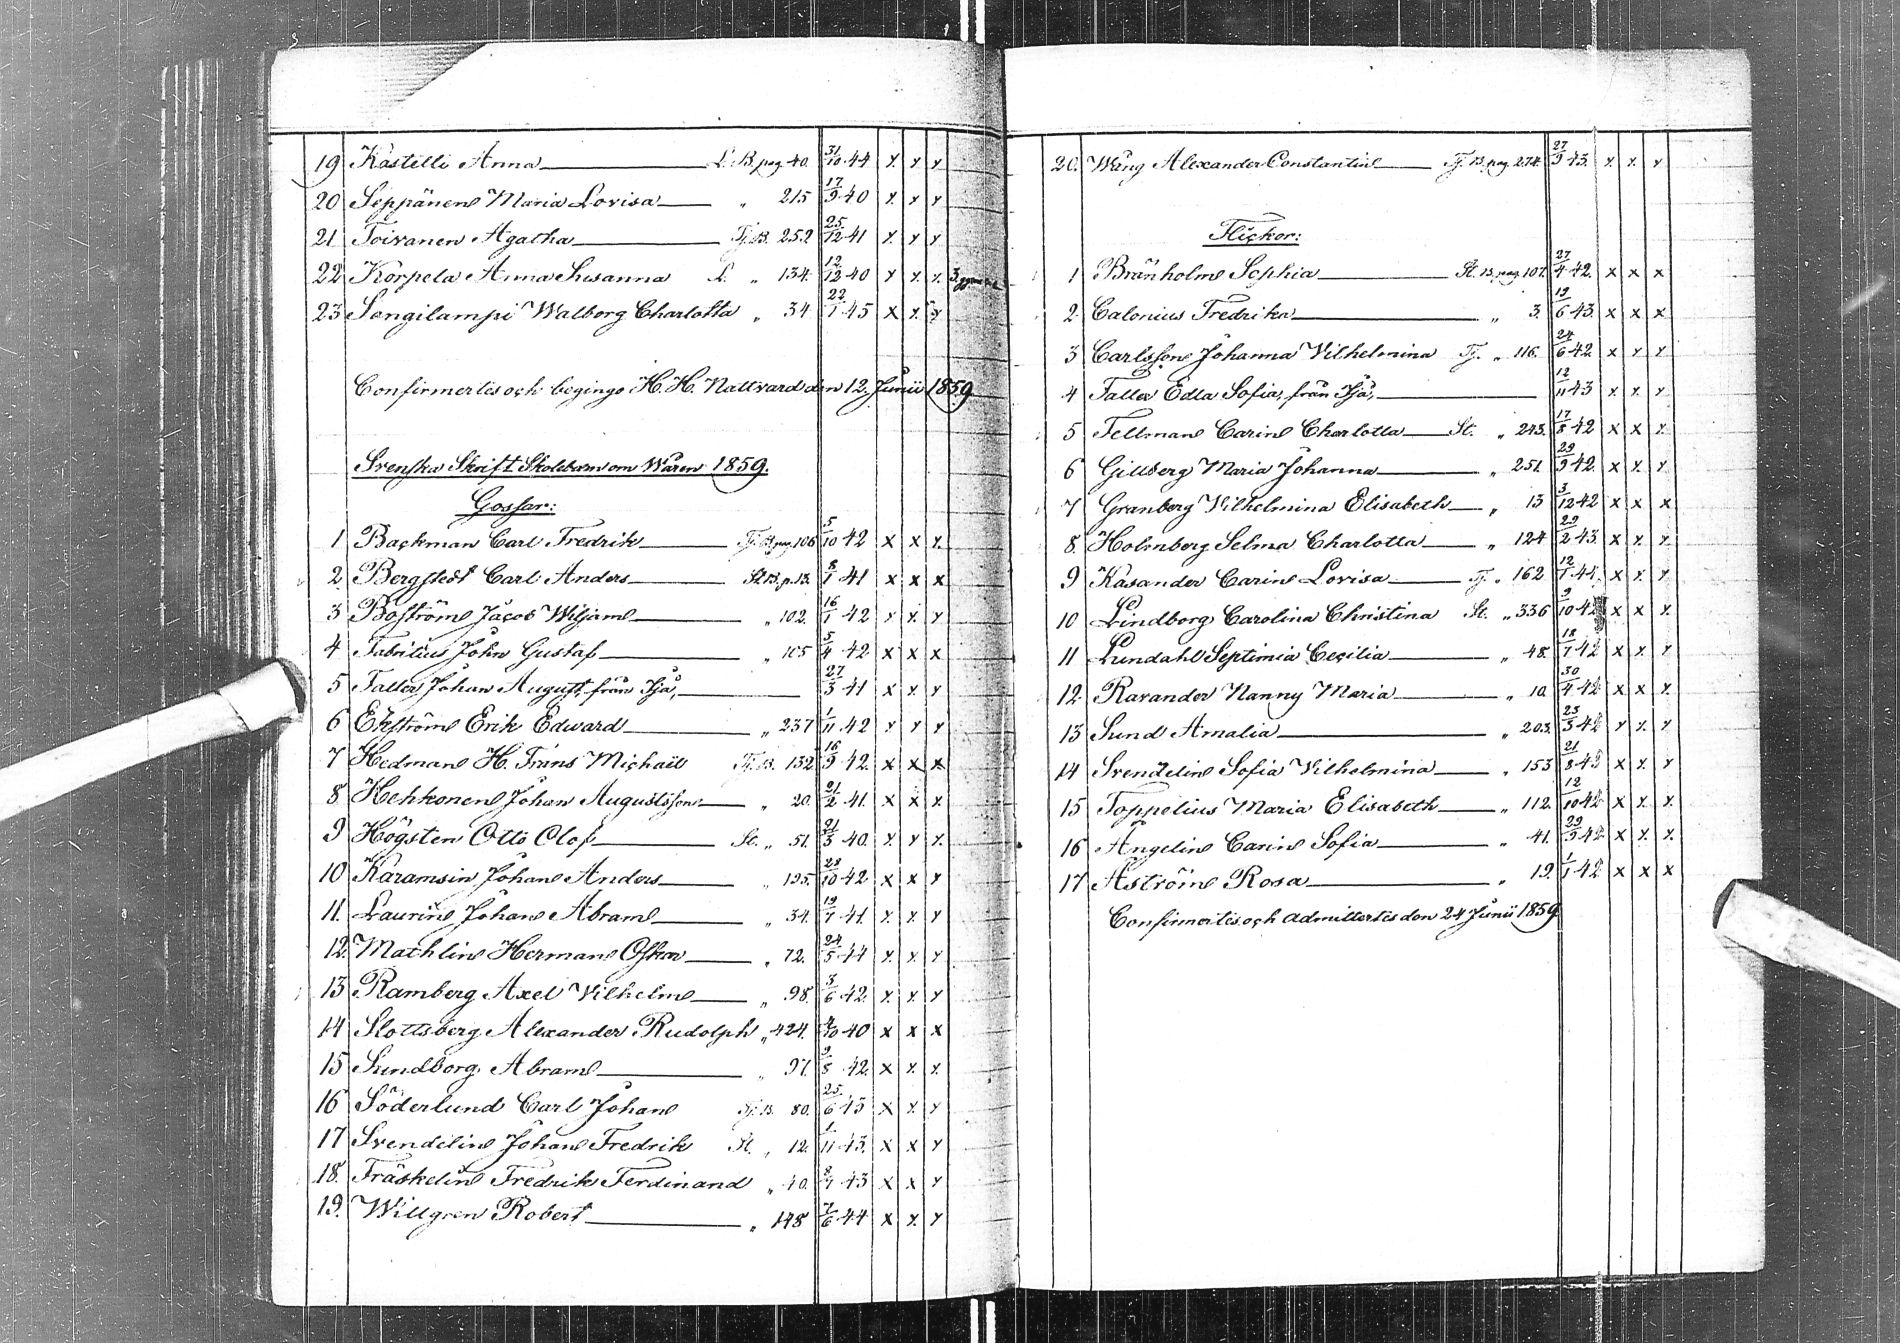 19 Kastelli Anna L. B. pag. 40. 31/10 44 x x x
20 Seppänen Maria Lovisa " 215 17/9 40 x x x
21 Toivanen Agatha Tj. B. 252 25/12 41 x x x
22 Korpela Anna Susanna L. " 134. 12/12 40 x x x 3
23 Songilampi Walborg Charlotta " 34 22/1 45 x x x
Confirmertes och begingo H. H. Nattvard den 12. Junii 1859
Svenska Skrift Skolebarn om Wåren 1859.
Gossar:
1 Backman Carl Fredrik Tj. B. pag. 106 5/10 42 x x x
2 Bergstedt Carl Anders St. B. p. 13. 8/1 41 x x x
3 Boström Jacob Wiljam " 102. 16/1 42 x x x
4 Fabritius John Gustaf " 105 5/4 42 x x x
5 Faller Johan August, från Ijå, 27/3 41 x x x
6 Ekström Erik Edward " 237 1/11 42 x x x
7 Hedman H. Frans Michaël Tj. B. 132 16/9 42. x x x
8 Hehkonen Johan Augustsson " 20. 21/2 41. x x x
9 Högsten Otto Olof St. " 51. 21/3 40. x x x
10 Karamsin Johan Anders " 195. 28/10 42 x x x
11. Laurin Johan Abram " 34. 19/7 41. x x x
12. Mathlin Herman Oskar " 72. 24/5 44 x x x
13 Ramberg Axel Vilhelm " 98. 3/6 42. x x x
14 Slottsberg Alexander Rudolph " 424. 4/10 40 x x x
15 Sundborg Abram " 97. 9/5 42. x x x
16 Söderlund Carl Johan Tj. B. 80. 25/6 43 x x x
17 Svendelin Johan Fredrik St. " 12. 1/11 43. x x x
18. Fräskelin Fredrik Ferdinand " 40. 8/7 43 x x x
19. Willgren Robert " 148 7/6 44 x x x
20. Wäng Alexander Constantin Tj. B. pag. 274. 27/9 43. x x x
Flickor:
1 Bränholm Sophia St. B. pag. 107. 27/4 42. x x x
2 Calonius Fredrika " 3. 19/6 43. x x x
3 Carlsson Johanna Vilhelmina Tj. " 116. 24/6 42 x x x
4 Faller Edla Sofia, från Ijå, 12/11 43 x x x
5 Fellman Carin Charlotta St. " 243. 17/8 42 x x x
6 Gillberg Maria Johanna " 251. 29/9 42. x x x
7 Granberg Vilhelmina Elisabeth " 13 3/12 42 x x x
8. Holmberg Selma Charlotta " 124 29/2 43 x x x
9 Kasander Carin Lovisa Tj. " 162 12/1 44. x x x
10 Lindborg Carolina Christina St. " 336 9/10 42 x x x
11 Lundahl Septimia Cecilia " 48. 18/7 42 x x x
12. Ravander Nanny Maria " 10. 30/4 42 x x x
13 Sund Amalia " 203. 23/3 42 x x x
14 Svendelin Sofia Vilhelmina " 153 21/8 43 x x x
15 Toppelius Maria Elisabeth " 112. 12/10 42 x x x
16 Ångelin Carin Sofia " 41. 29/9 42 x x x
17 Åström Rosa " 19. 1/1 42 x x x
Confirmertes och admittertes den 24 Junii 1859